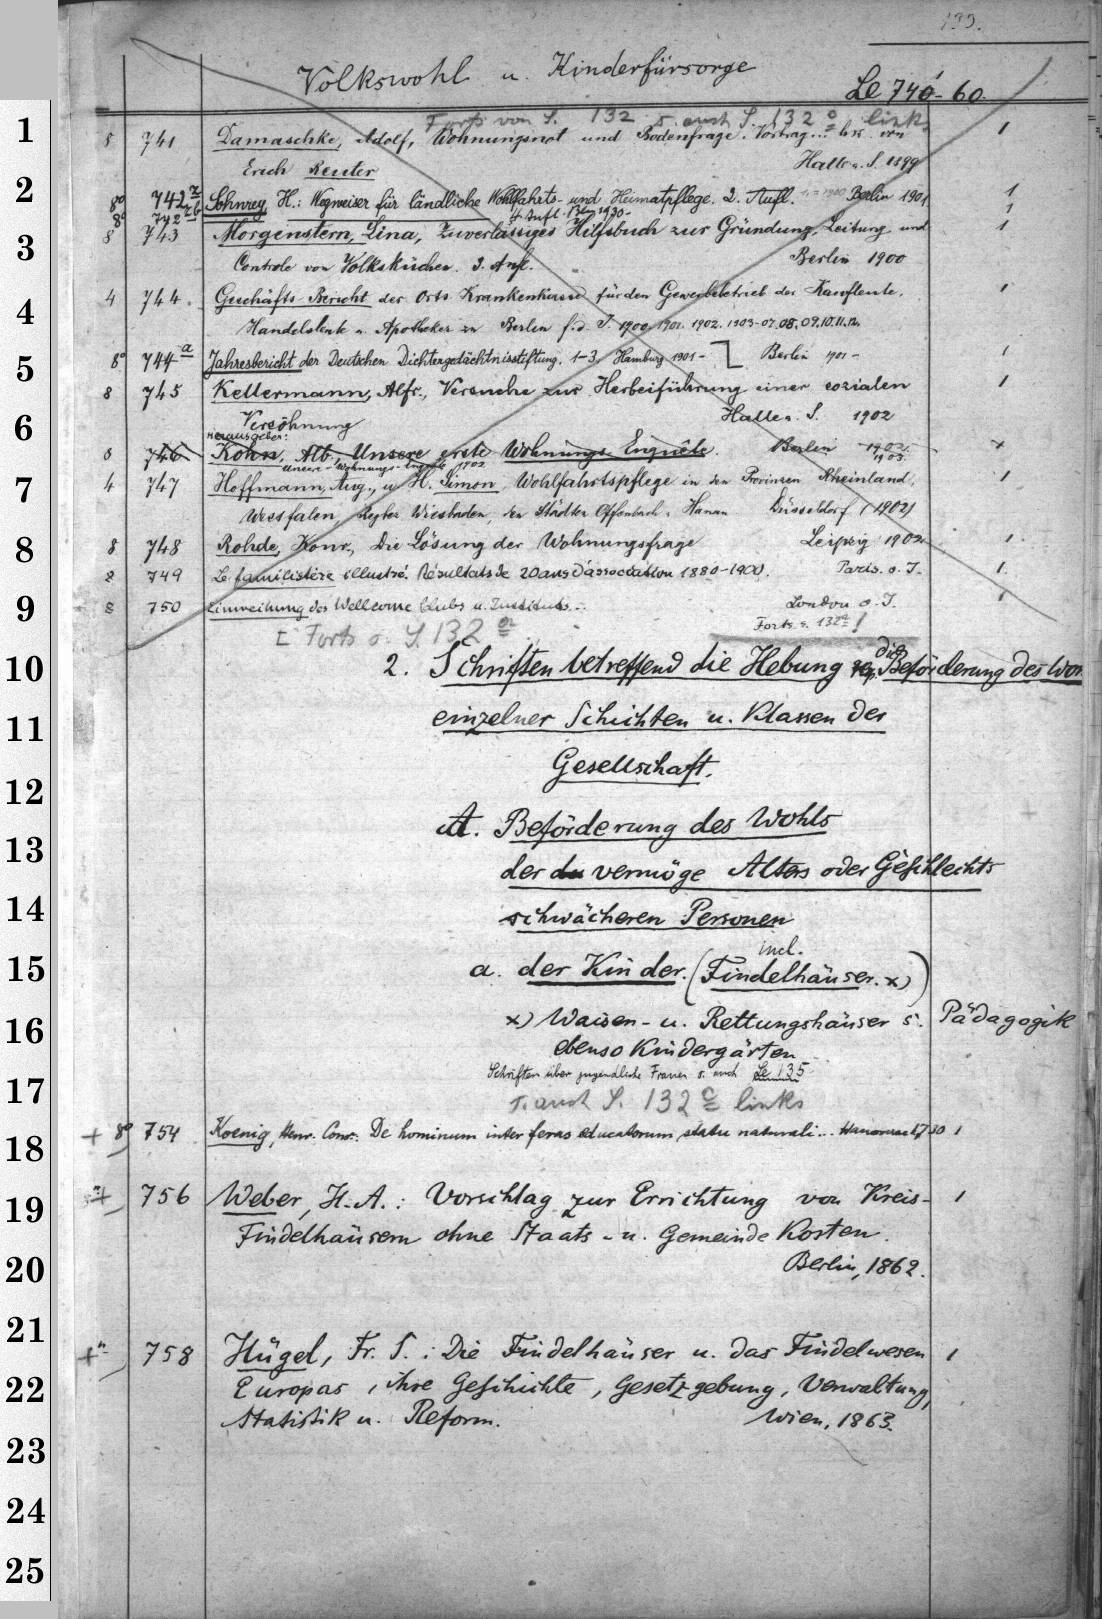 133.
Volkswohl u. Kinderfürsorge Le 740-60.
Forts von S. 132 s. auch S. 132 c links
1 8 741 Damaschke, Adolf, Wohnungsnot und Bodenfrage. Vortrag... hr. von 1
Erich Reuter Halle a. S. 1899
2 8° 742 z Sohnrey, H.: Wegweiser für ländliche Wohlfahrts- und Heimatpflege. 2. Aufl. Berlin 1901 1
8° 742 zb 4. Aufl. Bln 1930- 1
3 8 743 Morgenstern, Lina, Zuverlässiges Hilfsbuch zur Gründung, Leitung und 1
Controle von Volksküchen. 3. Aufl. Berlin 1900
4 4 744. Geschäfts-Bericht der Orts Krankenkasse für den Gewerbebetrieb der Kaufleute, 1
Handelsleute u. Apotheker zu Berlin f. d. J. 1900, 1901. 1902. 1903-07. 08. 09. 10. 11. 12.
5 8° 744 a Jahresbericht der Deutschen Dichtergedächtnisstiftung. 1-3. Hamburg 1901-] Berlin 1901- 1
8 745 Kellermann, Alfr., Versuche zur Herbeiführung einer sozialen 1
6 Versöhnung Halle a. S. 1902
Herausgeber:
8 746 Kohn, Alb., Unsere erste Wohnungs Enquête. Berlin 1902.
unsere Wohnungs-Enquête 1902 1903
7 4 747 Hoffmann, Aug., u. H. Simon, Wohlfahrtspflege in den Provinzen Rheinland, 1
Westfalen, Regbez Wiesbaden, den Städten Offenbach u. Hanau Düsseldorf (1902)
8 8 748 Rohde, Konr., Die Lösung der Wohnungsfrage Leipzig 1902. 1.
8 749 Le familistère illustré. Résultats de 20 ans d'association 1880-1900. Paris. o. J. 1.
9 8 750 Einweihung des Wellcome Clubs u. Instituts... London o. J. 1
[Forts s. S. 132 a Forts. s. 132 a!
10 2. Schriften betreffend die Hebung resp. die Beförderung des Woh
11 einzelner Schichten u. Klassen der
12 Gesellschaft.
13 A. Beförderung des Wohls
der vermöge Alters oder Geschlechts
14 schwächeren Personen
incl.
15 a. der Kinder. (Findelhäuser. x))
16 x) Waisen- u. Rettungshäuser s. Pädagogik
ebenso Kindergärten
17 Schriften über jugendliche Frauen s. auch Le 135
s. auch S. 132 c links
18 + 8° 754 Koenig, Henr. Conr.: De hominum inter feras educatorum statu naturali... Hanoverae 1730 1
19 + 756 Weber, H. A.: Vorschlag zur Errichtung von Kreis- 1
Findelhäusern ohne Staats- u. Gemeinde Kosten.
20 Berlin, 1862.
21
+ 758 Hügel, Fr. S.: Die Findelhäuser u. das Findelwesen 1
22 Europas, ihre Geschichte, Gesetzgebung, Verwaltung,
Statistik u. Reform. Wien, 1863.
23
24
25